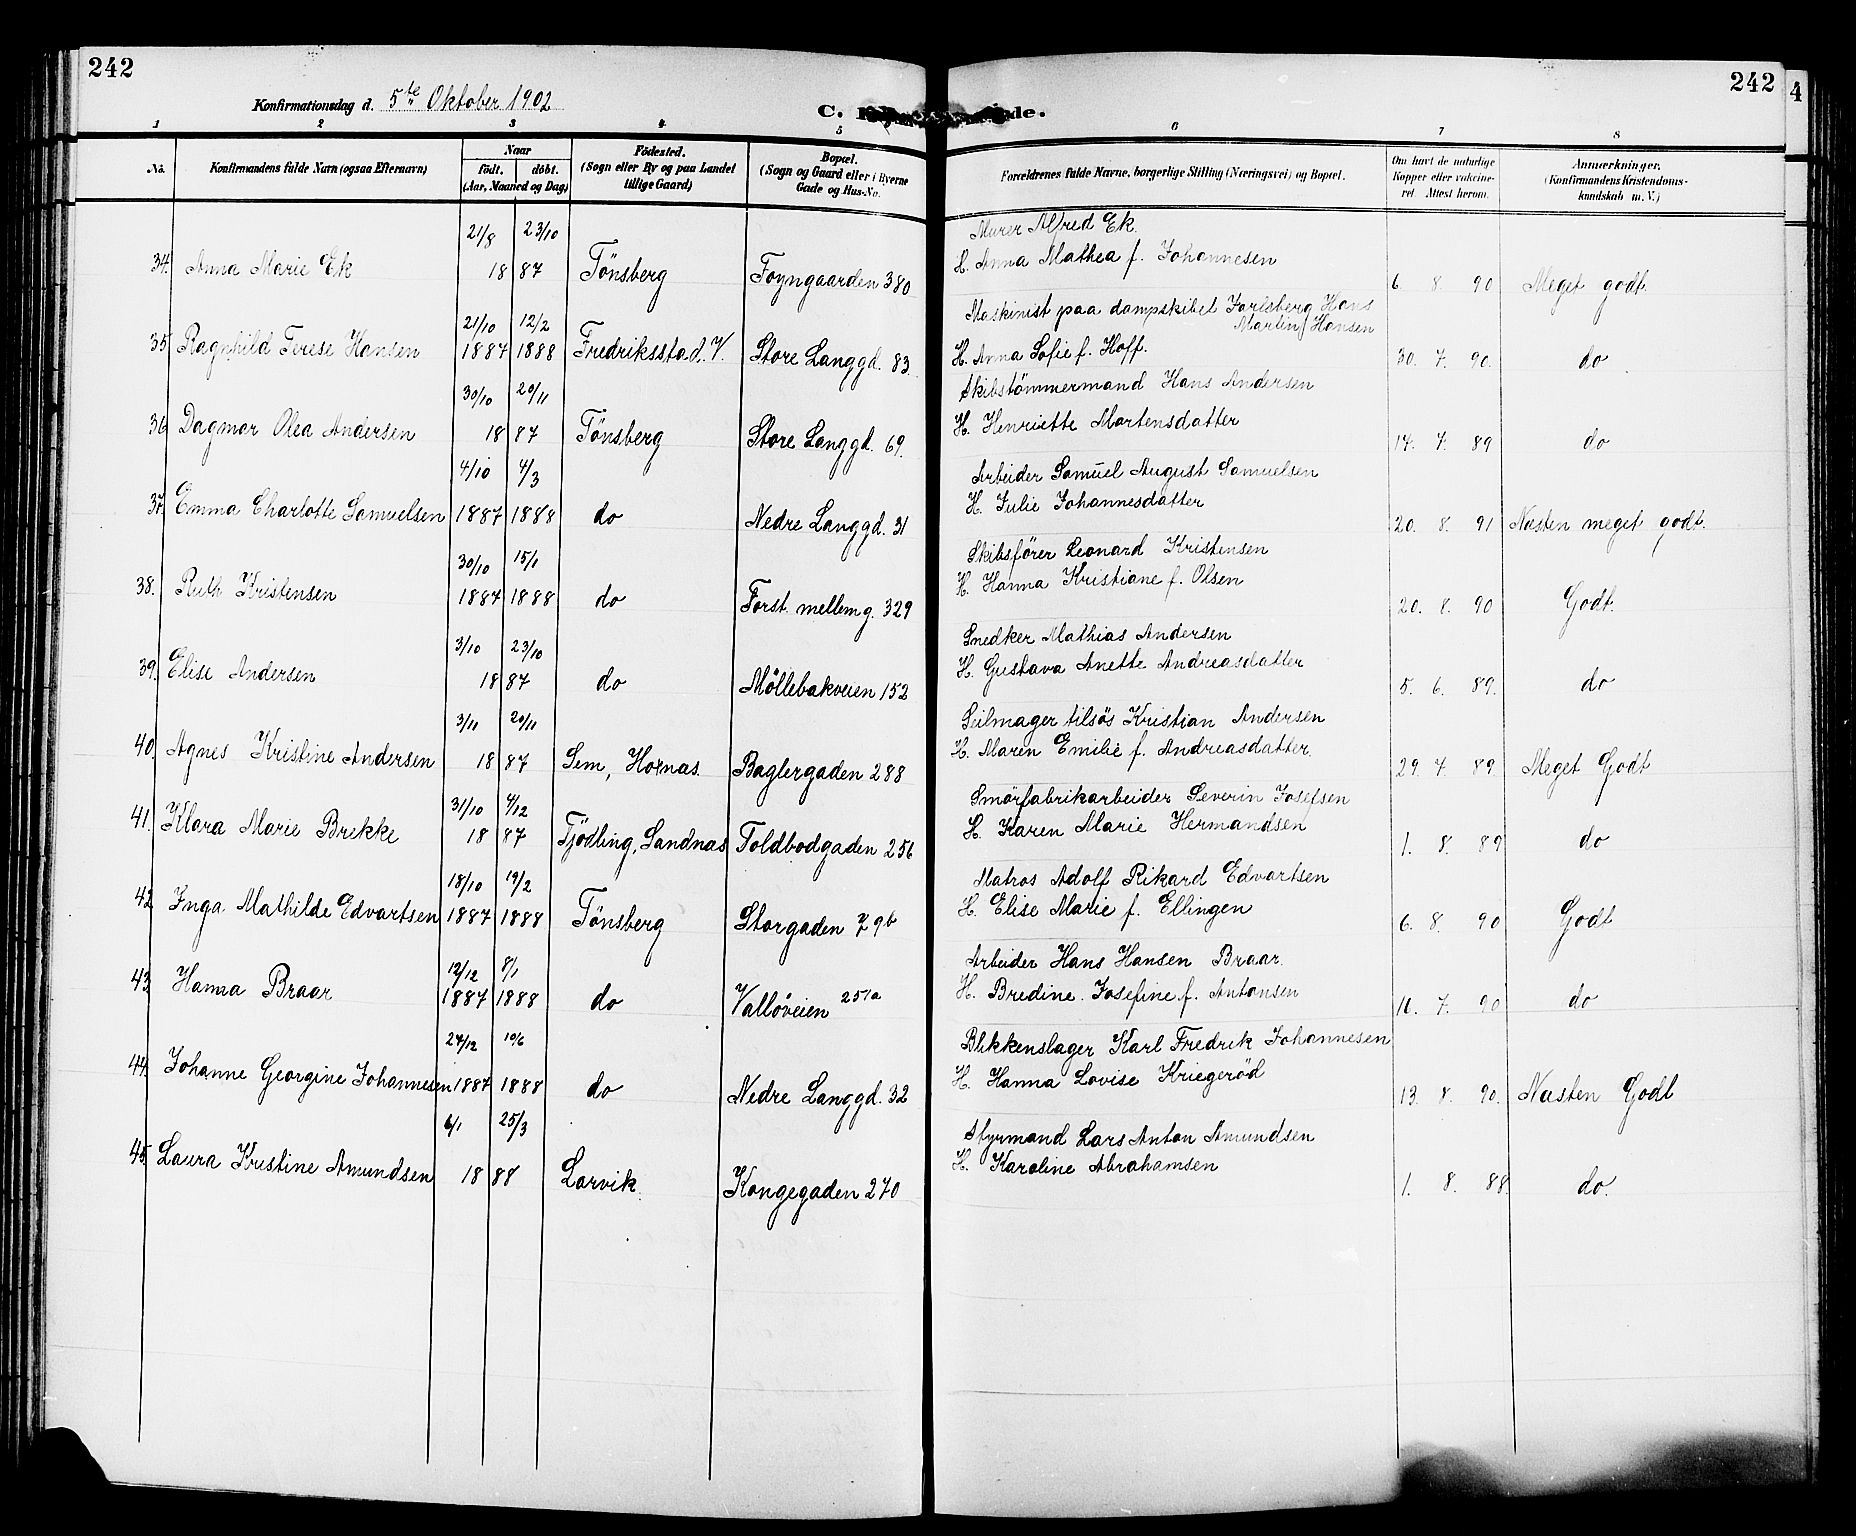 242
242
4
Konfirmationsdag d. 5te Oktober 1902
C.
1 2 3 4 5 6 7 8
No. Konfirmandens fulde Navn (ogsaa Efternavn) Naar født, døbt. (Aar, Maaned og Dag) Fødested. (Sogn eller By og paa Landet tillige Gaard) Bopæl. (Sogn og Gaard eller i Byerne Gade og Hus-No. Forældrenes fulde Navne, borgerlige Stilling (Næringsvei) og Bopæl. Om havt de naturlige Kopper eller vaccineret. Attest herom. Anmærkninger. (Konfirmandens Kristendomskundskab m. V.)
21/8 23/10 Murer Alfred Ek.
34. Anna Marie Ek 18 87 Tönsberg Foyngaarden 380 H. Anna Mathea f. Johannesen 6. 8. 90 Meget godt.
21/10 12/2 Maskinist paa dampskibet Jarlsberg Hans Martin Hansen
35 Ragnhild Terese Hansen 1887 1888 Fredriksstad. V. Store Langgd. 83 H. Anna Sofie f. Hoff. 30. 7. 90. do
30/10 20/11 Skibstömmermand Hans Andersen
36 Dagmar Olea Andersen 18 87 Tönsberg Store Langgd. 69. H. Henriette Martensdatter 14. 7. 89 do
4/10 4/3 Arbeider Samuel August Samuelsen
37. Emma Charlotte Samuelsen 1887 1888 do Nedre Langgd. 31 H. Julie Johannesdatter 20. 8. 91 Næsten meget godt.
30/10 15/1 Skibsförer Leonard Kristensen
38. Ruth Kristensen 1887 1888 do Forst. mellemg. 329 H. Hanna Kristiane f. Olsen 20. 8. 90 Godt.
3/10 23/10 Snedker Mathias Andersen
39. Elise Andersen 18 87 do Möllebakveien 152 H. Gustava Anette Andreasdatter 5. 6. 89. do
3/11 20/11 Seilmager tilsös Kristian Andersen
40. Agnes Kristine Andersen 18 87 Sem, Hornas. Baglergaden 288 H. Maren Emilie f. Andreasdatter. 29. 7. 89. Meget Godt
31/10 4/12 Smörfabrikarbeider Severin Josefsen
41. Klara Marie Brekke 18 87 Tjödling, Sandnas Toldbodgaden 256 H. Karen Marie Hermandsen 1. 8. 89 do
18/10 19/2 Matros Adolf Rikard Edvartsen
42 Inga Mathilde Edvartsen 1887 1888 Tönsberg Storgaden 79b H. Elise Marie f. Ellingen 6. 8. 90 Godt
12/12 8/1 Arbeider Hans Hansen Braar.
43. Hanna Braar 1887 1888 do Vallöveien 251a H. Bredine Josefine f. Antonsen 16. 7. 90 do
27/12 10/6 Blikkenslager Karl Fredrik Johannesen
44. Johanne Georgine Johannesen 1887 1888 do Nedre Langgd. 32 H. Hanna Lovise Kriegeröd 13. 8. 90. Næsten Godt
6/1 25/3 Styrmand Lars Anton Amundsen
45. Laura Kristine Amundsen 18 88 Larvik. Kongegaden 270 H. Karoline Abrahamsen 1. 8. 88. do.